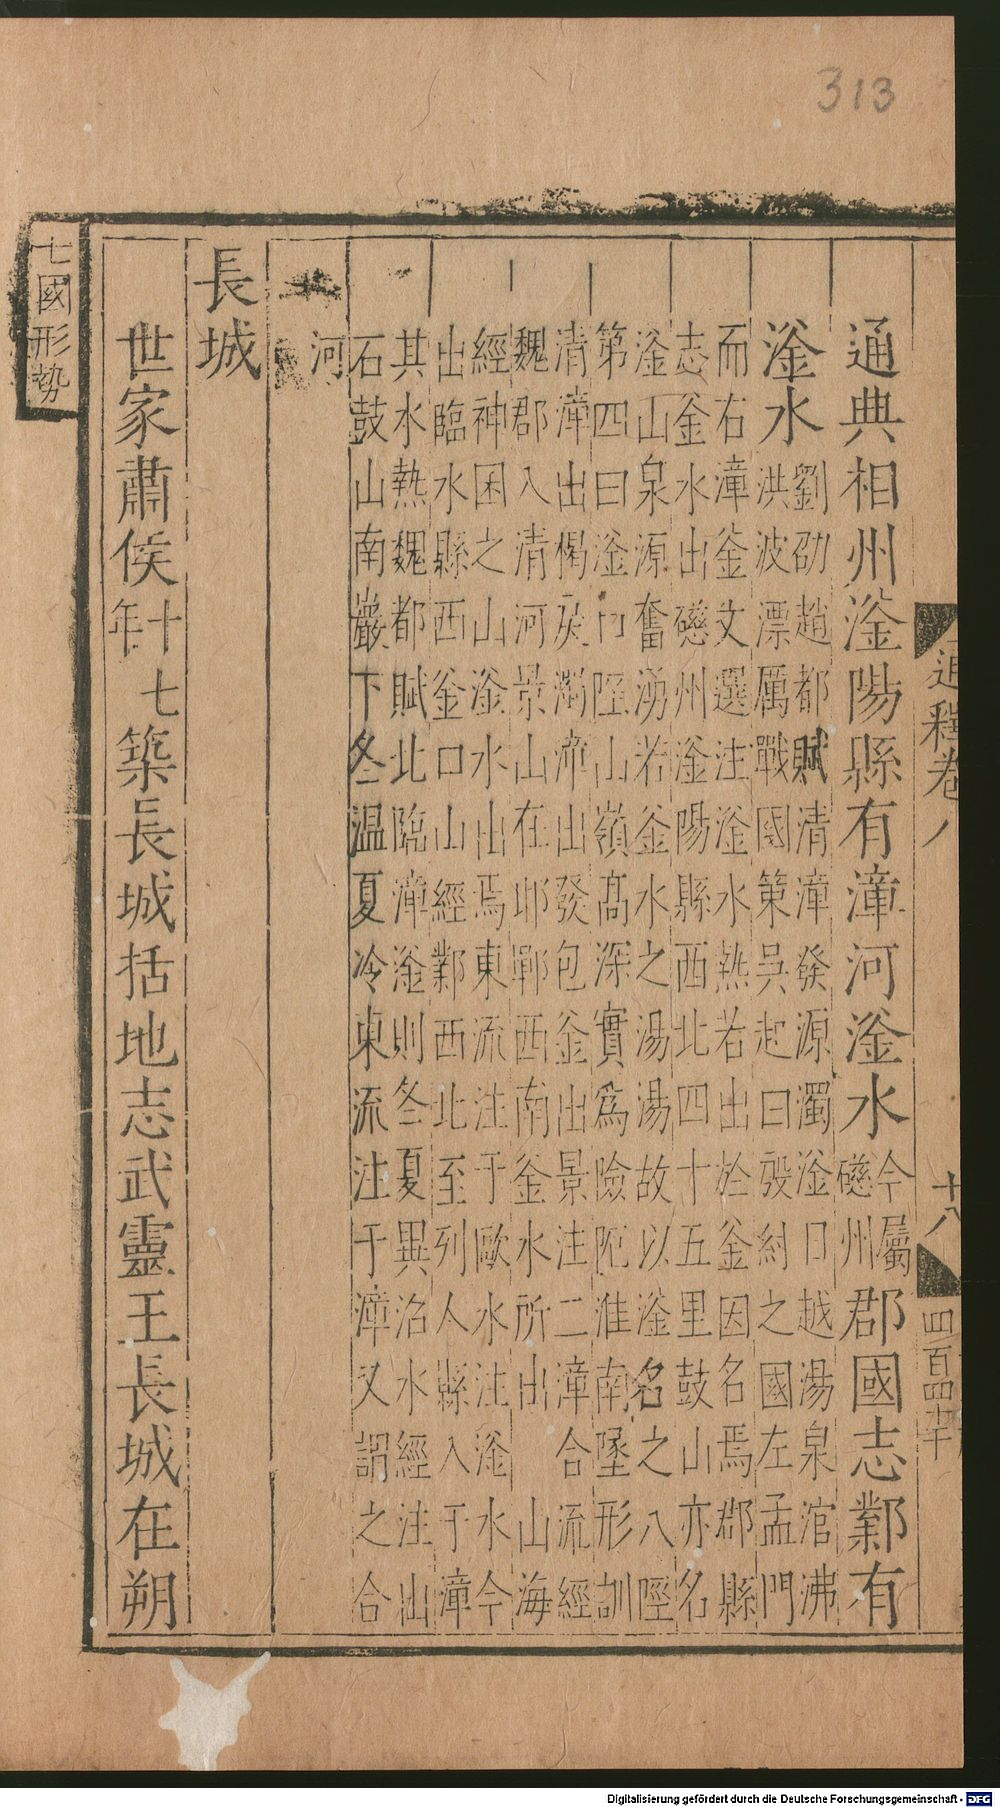 313
通釋卷八
十八
四百四十
通典相州滏陽縣有漳河滏水今屬磁州郡國志鄴有
滏水劉劭趙都賦清漳發源濁滏汨越湯泉涫沸
洪波漂厲戰國策吳起曰殷紂之國左孟門
而右漳釜文選注滏水熱若出於釜因名焉郡縣
志釜水出磁州滏陽縣西北四十五里鼓山亦名
滏山泉源奮湧若釜水之湯湯故以滏名之八陘
第四曰滏口陘山嶺高深實爲險阨淮南墬形訓
清漳出楬戾濁漳出發包釜出景注二漳合流經
魏郡入清河景山在邯鄲西南釜水所出山海
經神囷之山滏水出焉東流注于歐水注滏水今
出臨水縣西釜口山經鄴西北至列人縣入于漳
其水熱魏都賦北臨漳滏則冬夏異沿水經注山
石鼓山南巖下冬温夏冷東流注于漳又謂之合
河
長城
世家肅侯十七年築長城括地志武靈王長城在朔
七國形勢
Digitalisierung gefördert durch die Deutsche Forschungsgemeinschaft - DFG